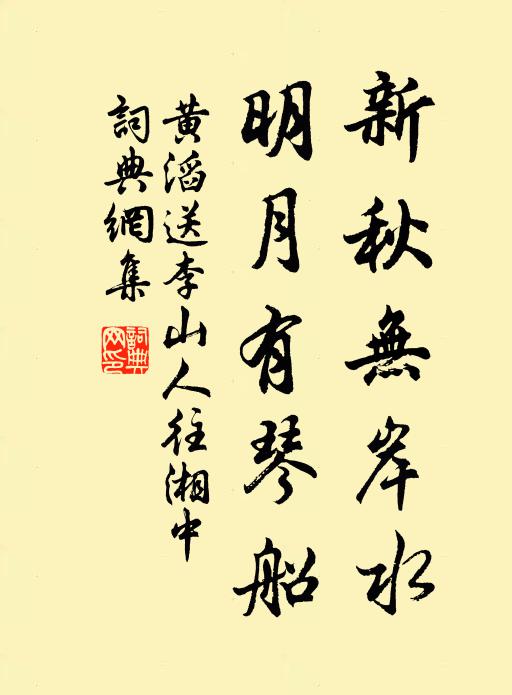 新秋無岸水
明月有琴船
黃滔送李山人往湘中
詞典網集
詞典
网印